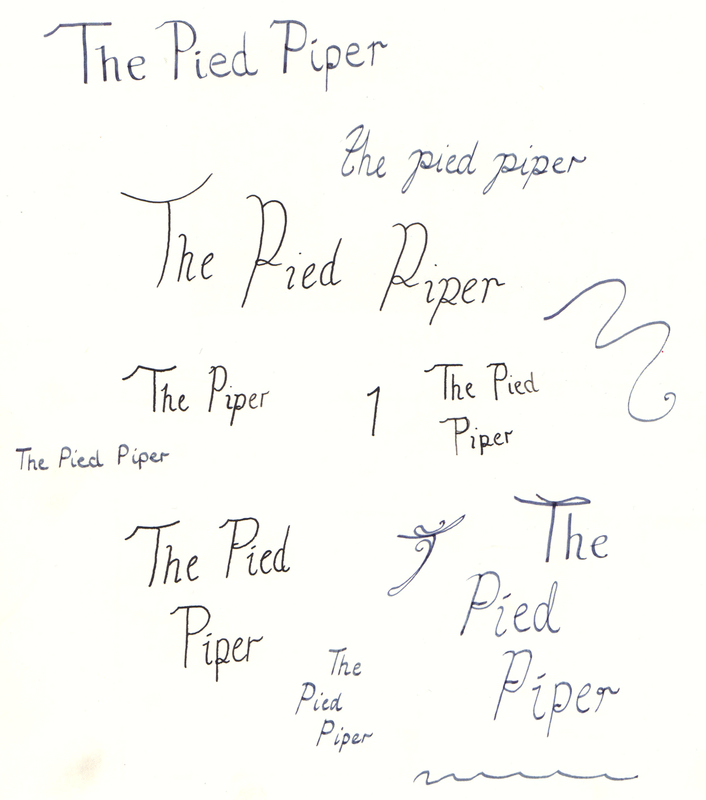 The Pied Piper
the pied piper
The Pied Piper
The Piper
1
The Pied
Piper
The Pied Piper
The Pied
Piper
The
Pied
Piper
The
Pied
Piper